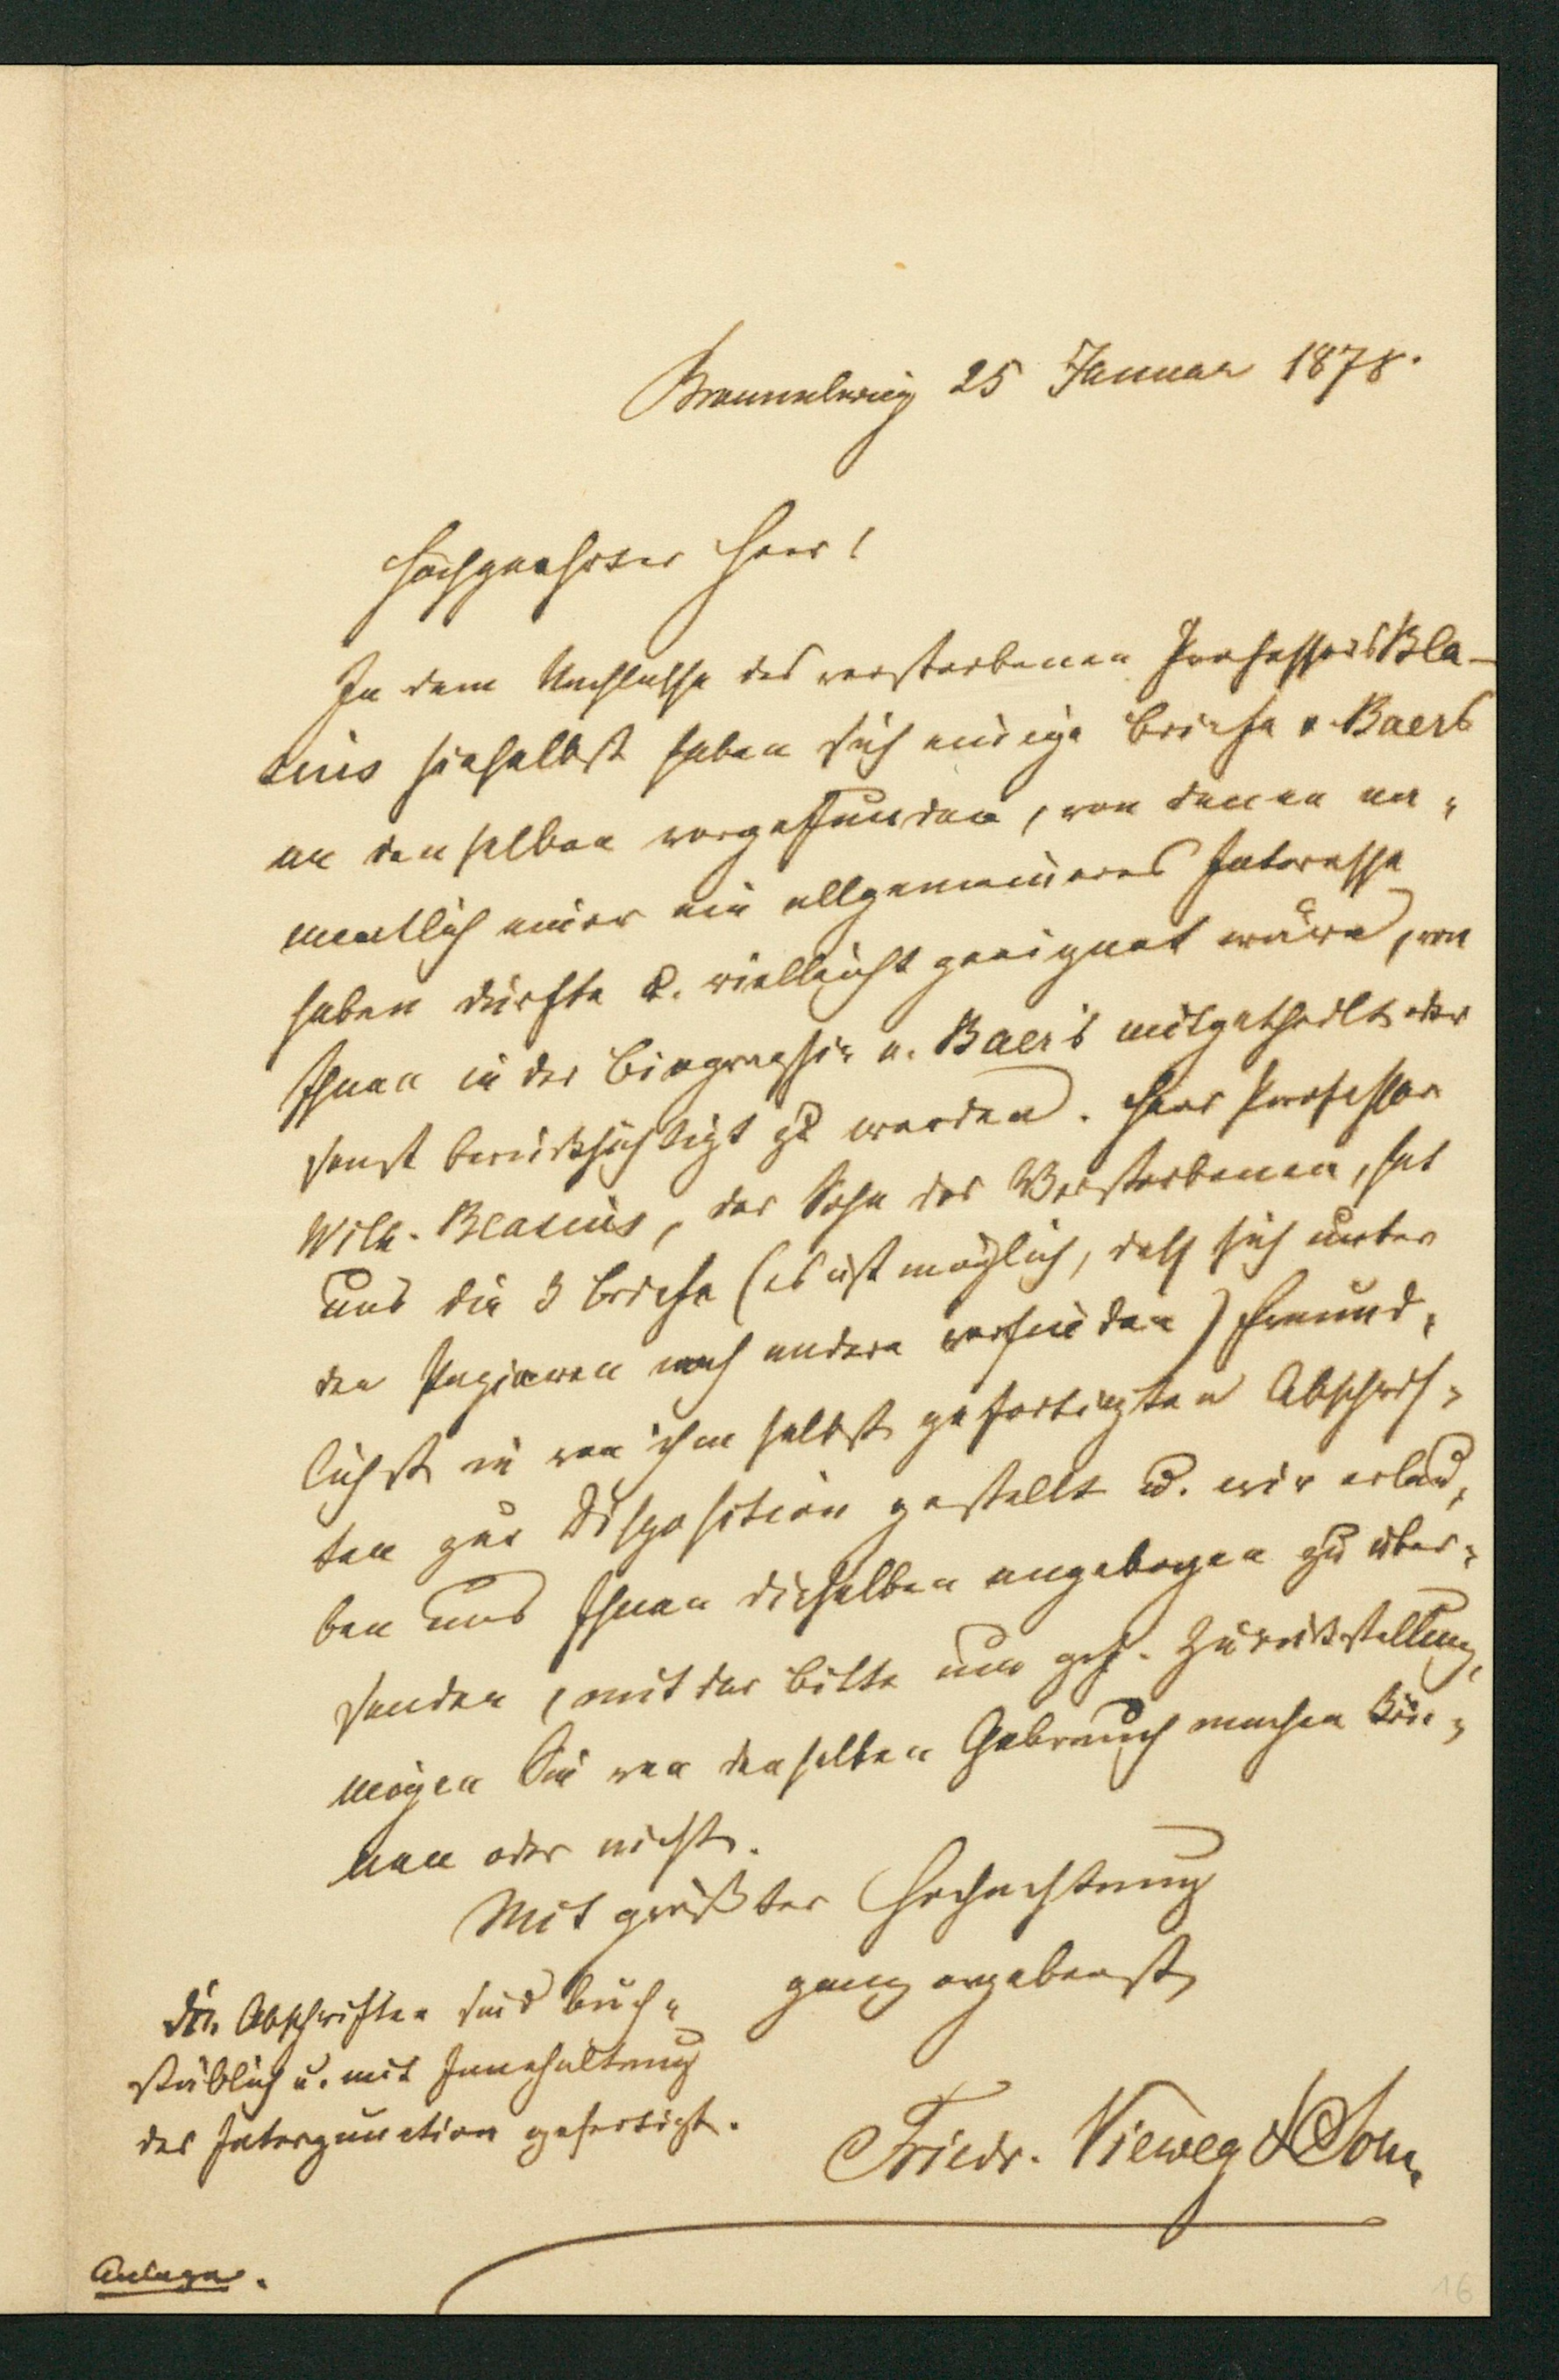 Braunschweig 25 Januar 1878.
Hochgeehrter Herr!
In dem Nachlasse des verstorbenen Professors Bla-
sius hieselbst haben sich einige Briefe v. Baers
an denselben vorgefunden, von denen na-
mentlich einer ein allgemeineres Interesse
haben dürfte u. vielleicht geeignet wäre, von
Ihnen in der Biographie v. Baer's mitgetheilt oder
sonst berücksichtigt zu werden. Herr Professor
Wilh. Blasius, der Sohn des Verstorbenen, hat
uns die 3 Briefe (es ist möglich, daß sich unter
den Papieren noch andere vorfinden) freund-
lichst in von ihm selbst gefertigten Abschrif-
ten zur Disposition gestellt u. wir erlau-
ben uns Ihnen dieselben angebogen zu über-
senden, mit der Bitte um gef. Zurückstellung,
mögen Sie von denselben Gebrauch machen kön-
nen oder nicht.
Mit größter Hochachtung
ganz ergebenst
Friedr. Vieweg & Sohn.
Die Abschriften sind buch-
stäblich u. mit Innehaltung
der Interpunction gefertigt.
Anlage.
16